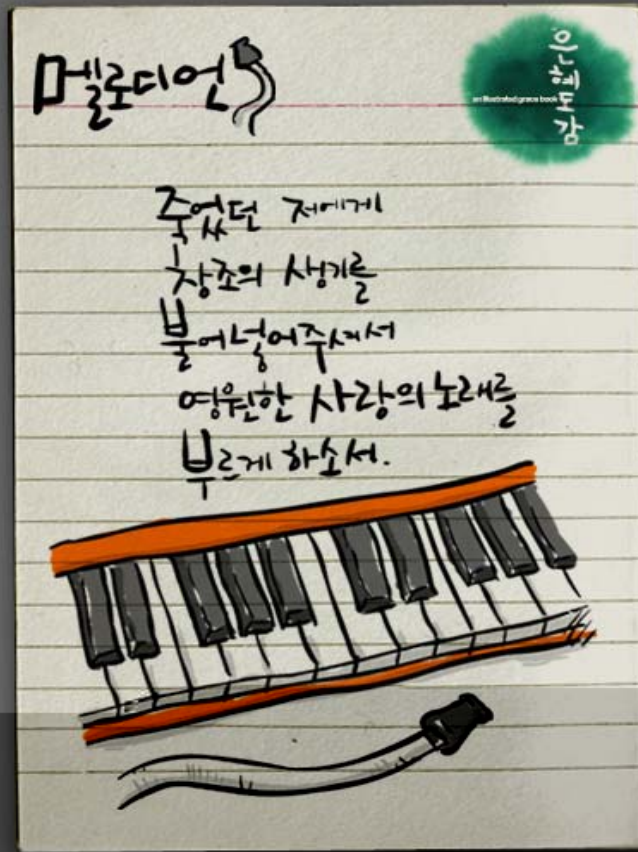 멜로디언
은혜도감
an illustrated grace book
죽었던 저에게
창조의 생기를
불어넣어주셔서
영원한 사랑의 노래를
부르게 하소서.